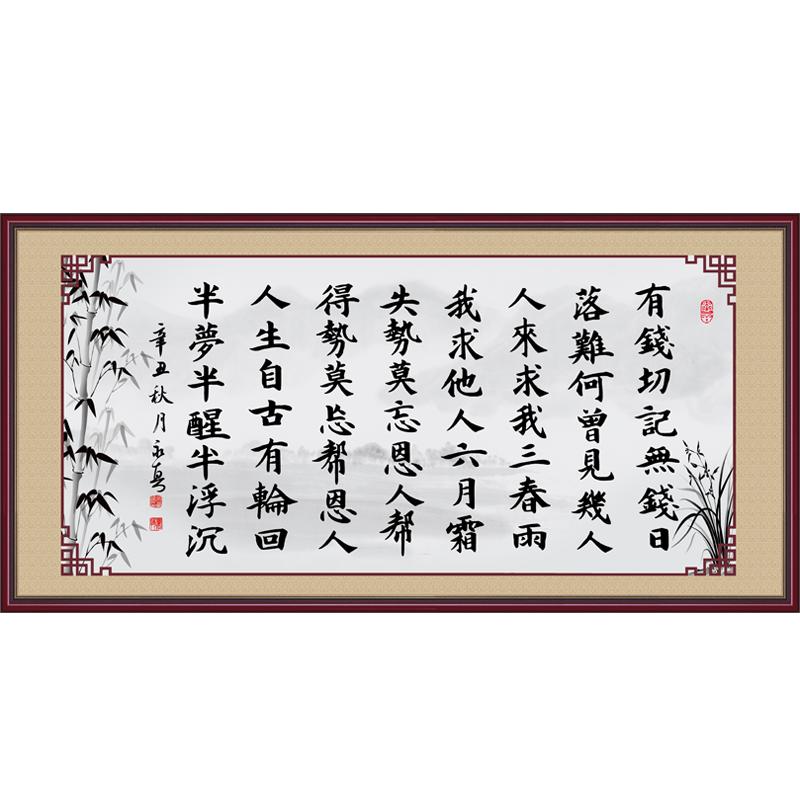 有錢切記無錢日
落難何曾見幾人
人來求我三春雨
我求他人六月霜
失勢莫忘恩人帮
得勢莫忘帮恩人
人生自古有輪回
半夢半醒半浮沉
辛丑秋月永